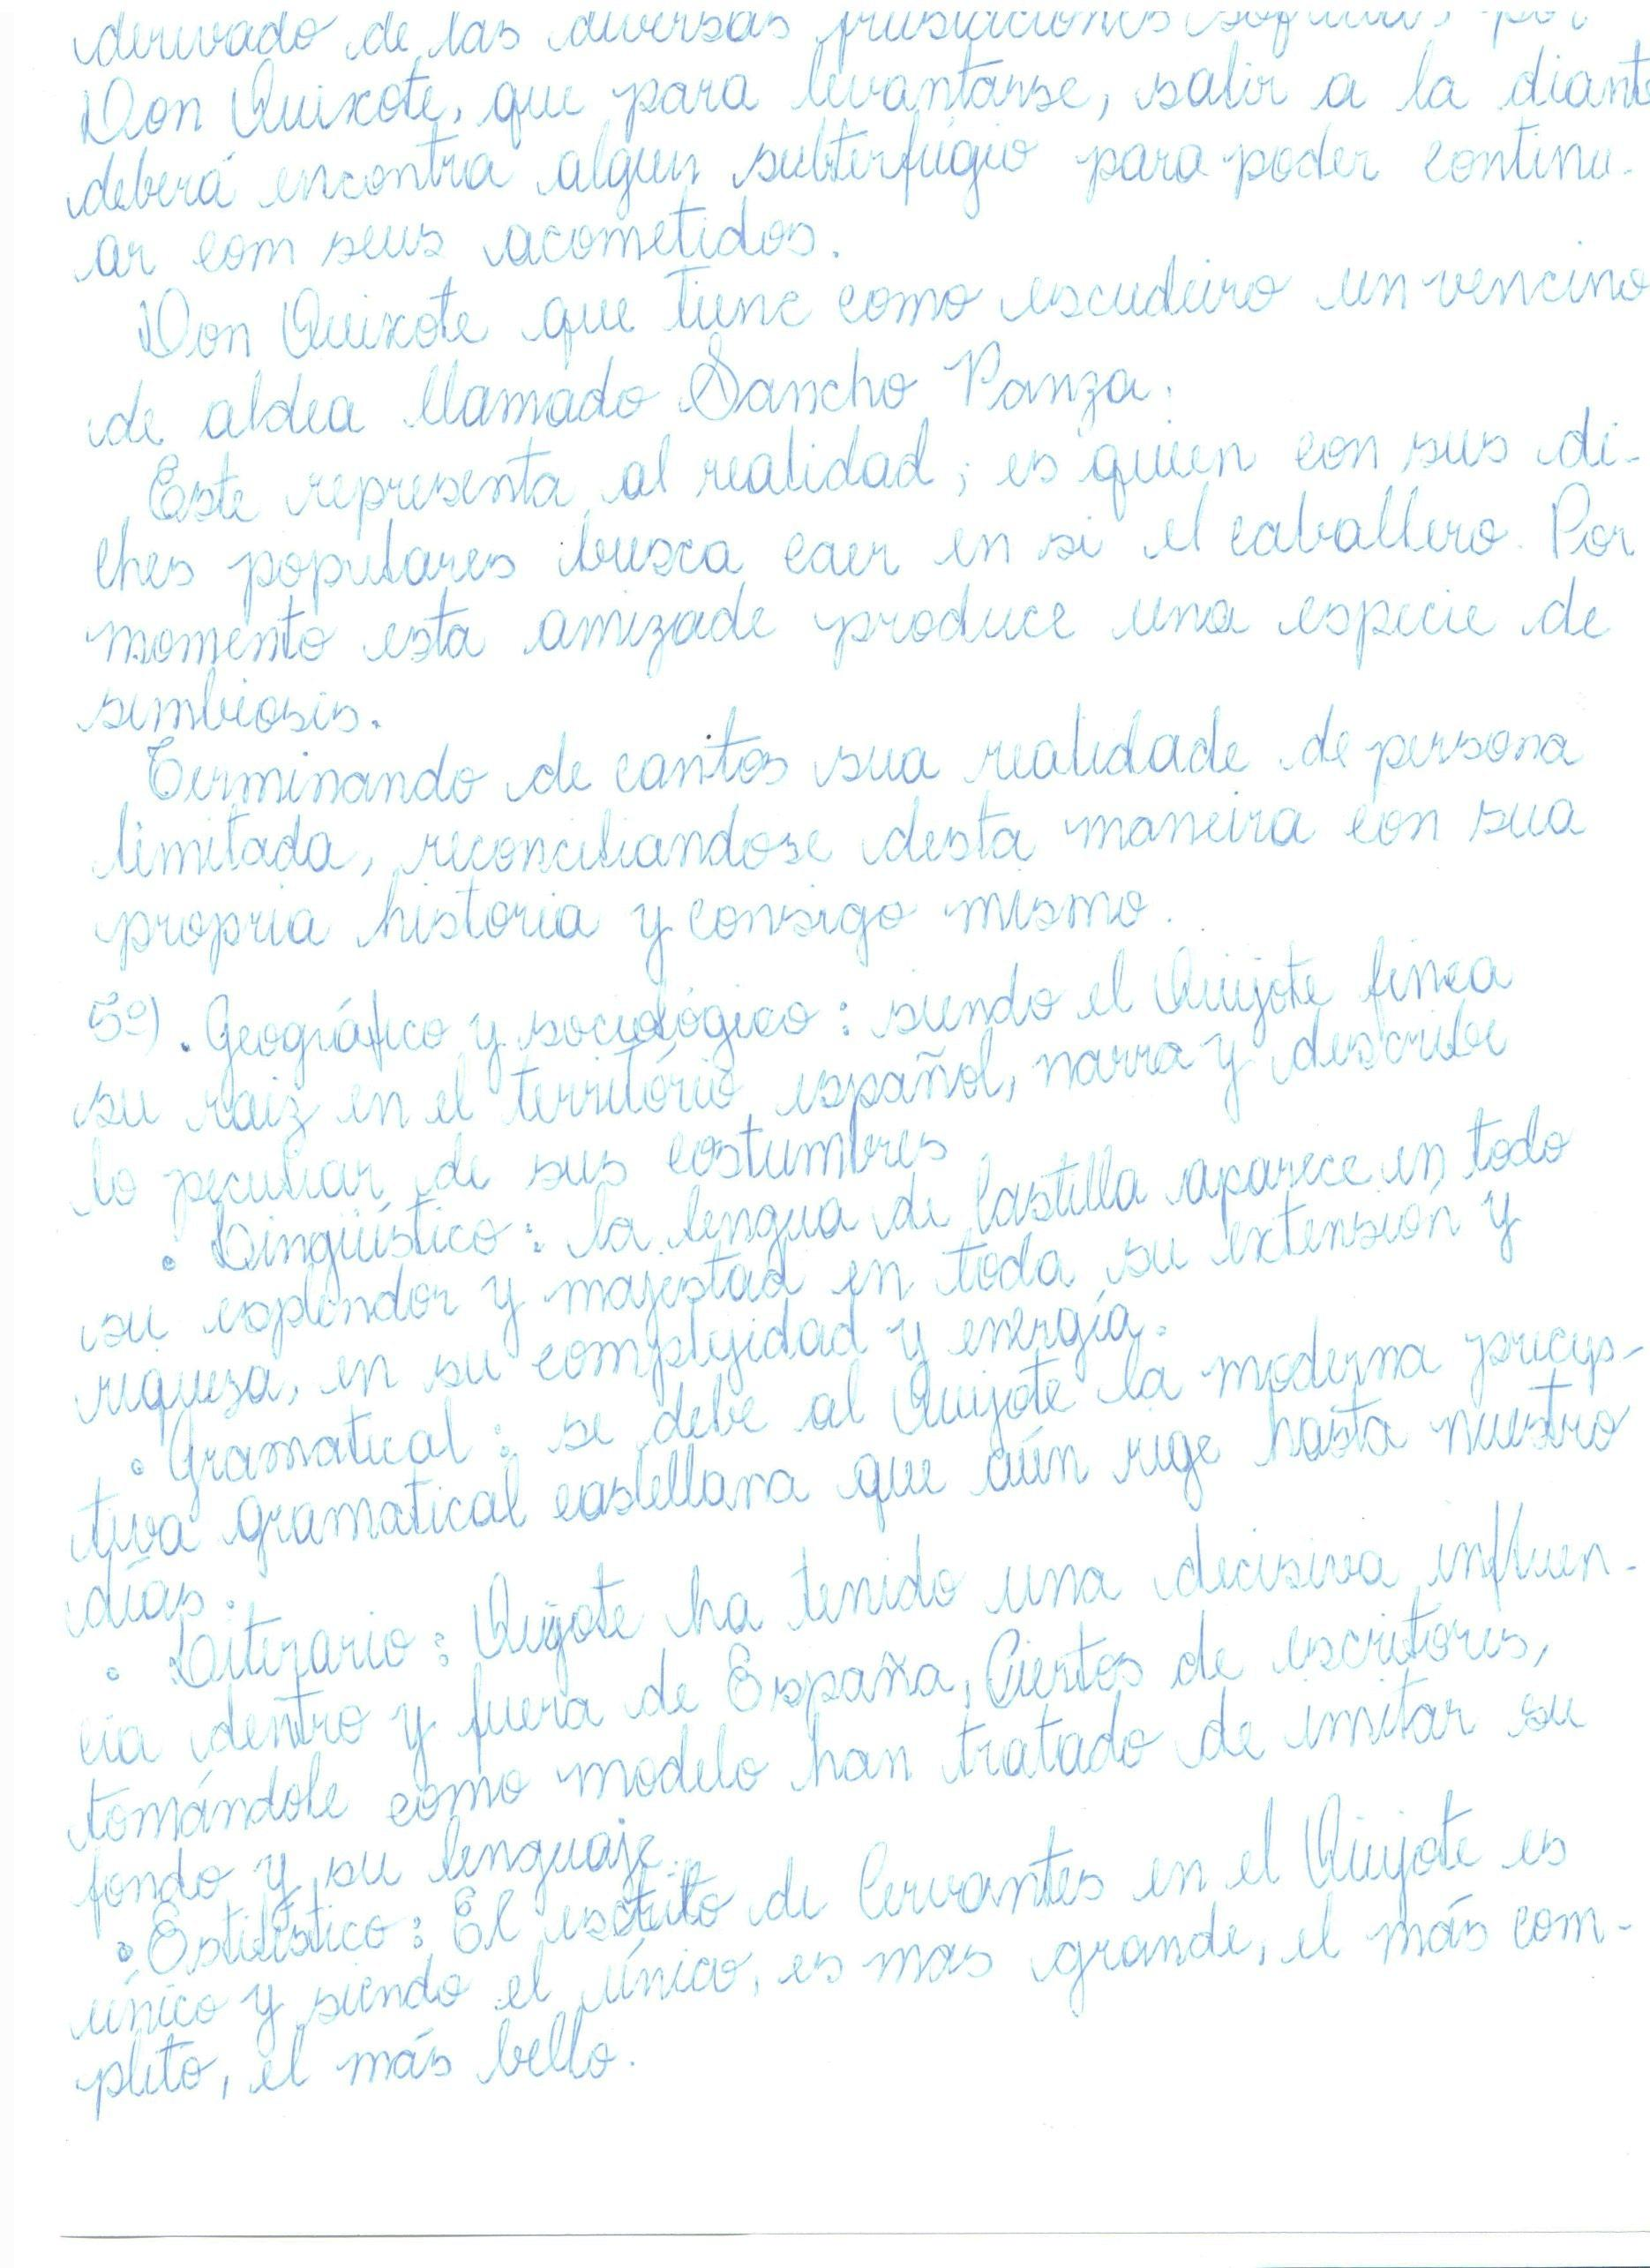 derivado de las diversas frustaciones sofridas por
Don Quixote, que para levantarse, salir a la diante
deberá encontra algun subterfúgio para poder continu-
ar com seus acometidos.
Don Quixote que tiene como escudeiro un vencino
de aldea llamado Sancho Panza.
Este representa al realidad; es quien con sus di-
ches populares busca caer en si el caballero. Por
momento esta amizade produce una especie de
simbiosis.
Terminando de cantos sua realidade de persona
limitada, reconciliandose desta maneira con sua
propria historia y consigo mismo.
5º). Geográfico y sociológico: siendo el Quijote finca
su raiz en el território español, narra y describe
lo peculiar de sus costumbres
• Lingüístico: la lengua de Castilla aparece en todo
su esplendor y majestad en toda su extensión y
riqueza, en su complejidad y energía.
• Gramatical: se debe al Quijote la moderna precep-
tiva gramatical castellana que aún rige hasta nuestro
días.
• Literario: Quijote ha tenido una decisiva influen-
cia dentro y fuera de España, Ciertos de escritores,
tomándole como modelo han tratado de imitar su
fondo y su lenguaje.
• Estilístico: El escrito de Cervantes en el Quijote es
único y siendo el único, es mas grande, el más com-
pleto, el más bello.